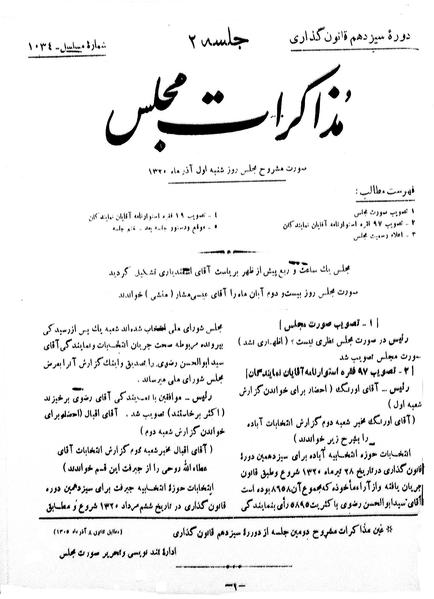 دورهٔ سیزدهم قانون‌گذاری
جلسه ۲
شمارهٔ مسلسل - ۱۰۳۴
مذاکرات مجلس
صورت مشروح مجلس روز شنبه اول آذر ماه ۱۳۲۰
فهرست مطالب:
۱ تصویب صورت مجلس
۲ - تصویب ۹۷ فقره استوارنامه آقایان نمایندگان
۳ - اعلام رسمیت مجلس
۴ - تصویب ۱۹ فقره استوارنامه آقایان نمایندگان
۵ - موقع و دستور جلسه بعد - ختم جلسه
مجلس یک ساعت و ربع پیش از ظهر بریاست آقای اسفندیاری تشکیل گردید
صورت مجلس روز بیست و دوم آبان ماه را آقای عیسی مشار (منشی) خواندند
[۱ - تصویب صورت مجلس]
رئیس در صورت مجلس نظری نیست؟ (اظهاری نشد)
صورت مجلس تصویب شد
[۲ - تصویب ۹۷ فقره استوارنامه آقایان نمایندگان]
رئیس - آقای اورنگ (احضار برای خواندن گزارش
شعبه اول)
(آقای اورنگ مخبر شعبه اول گزارش انتخابات آباده
را بشرح زیر خواندند)
انتخابات حوزه انتخابیه آباده برای سیزدهمین دورهٔ
قانون گذاری در تاریخ ۲۸ تیر ماه ۱۳۲۰ شروع و طبق قانون
جریان یافته و از آراء مأخوذه که مجموع آن ۸۹۵۸ بوده است
آقای سید ابوالحسن رضوی با کثریت ۵۸۹۵ رأی بنمایندگی
مجلس شورای ملی انتخاب شده‌اند شعبه یک پس از رسیدگی
بپرونده مربوطه صحت جریان انتخابات و نمایندگی آقای
سید ابوالحسن رضوی را تصدیق و اینک گزارش آنرا بعرض
مجلس شورای ملی میرساند.
رئیس - موافقین با نمایندگی آقای رضوی برخیزند
(اکثر برخاستند) تصویب شد. آقای اقبال (احضار برای
خواندن گزارش شعبه دوم)
(آقای اقبال مخبر شعبه دوم گزارش انتخابات آقای
عطاءالله روحی را از جیرفت از این قسم خواندند)
انتخابات حوزهٔ انتخابیه جیرفت برای سیزدهمین دوره
قانون گذاری در تاریخ ششم مرداد ۱۳۲۰ شروع و مطابق
* عین مذاکرات مشروح دومین جلسه از دورهٔ سیزدهم قانون گذاری
(مطابق قانون ۸ آذر ماه ۱۳۰۵)
ادارهٔ تند نویسی و تحریر صورت مجلس
-۱-